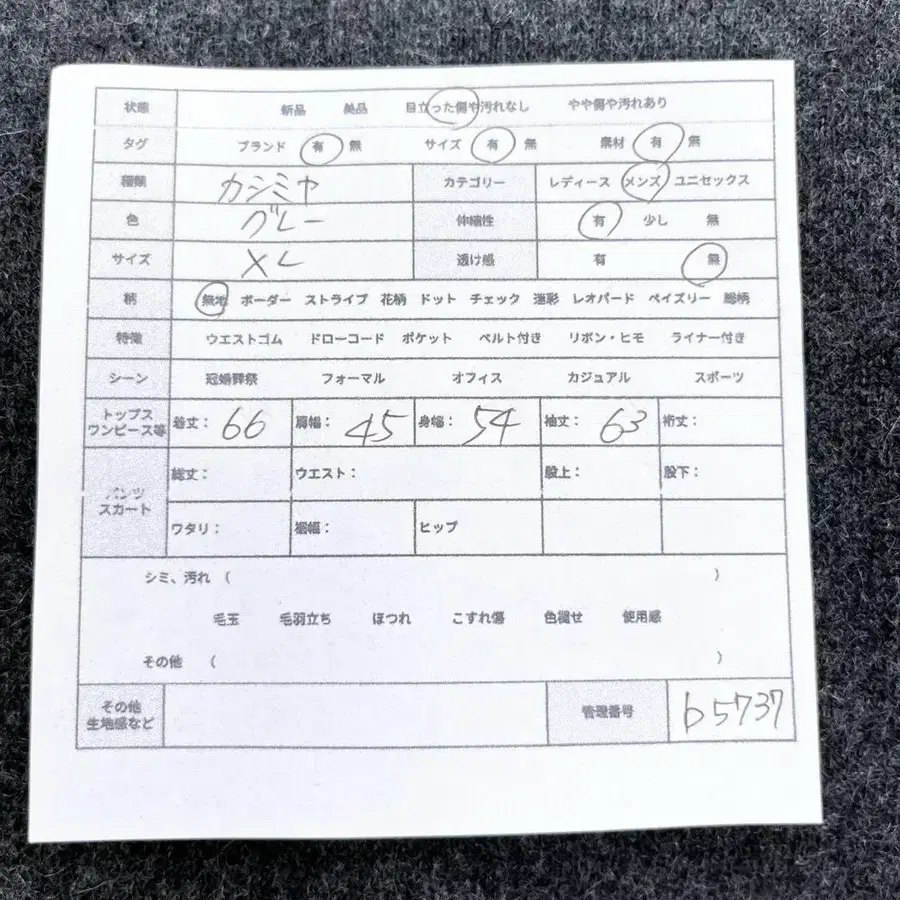 状態 新品 美品 目立った傷や汚れなし やや傷や汚れあり
タグ ブランド 有 無 サイズ 有 無 素材 有 無
種類 カシミヤ カテゴリー レディース メンズ ユニセックス
色 グレー 伸縮性 有 少し 無
サイズ XL 透け感 有 無
柄 無地 ボーダー ストライプ 花柄 ドット チェック 迷彩 レオパード ペイズリー 総柄
特徴 ウエストゴム ドローコード ポケット ベルト付き リボン・ヒモ ライナー付き
シーン 冠婚葬祭 フォーマル オフィス カジュアル スポーツ
トップス
ワンピース等 着丈: 66 肩幅: 45 身幅: 54 袖丈: 63 裄丈:
パンツ
スカート 総丈: ウエスト: 股上: 股下:
ワタリ: 裾幅: ヒップ
シミ、汚れ ( )
毛玉 毛羽立ち ほつれ こすれ傷 色褪せ 使用感
その他 ( )
その他
生地感など 管理番号 b5737